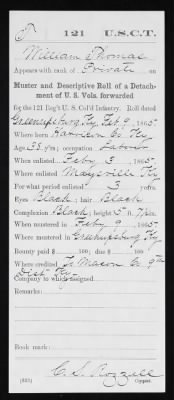 T 121 U.S.C.T.
William Thomas
Appears with rank of Private on
Muster and Descriptive Roll of a Detach-
ment of U. S. Vols. forwarded
for the 121 Reg't U. S. Col'd Infantry. Roll dated
Greenupsburg, Ky Feb 9, 1865
Where born Harrison Co. Ky
Age 38 y'rs; occupation Laborer
When enlisted Feby 3, 1865
Where enlisted Maysville Ky
For what period enlisted 3 years.
Eyes Black; hair Black
Complexion Black; height 5 ft. 7 in.
When mustered in Feby 9, 1865
Where mustered in Greenupsburg Ky
Bounty paid $ 100; due $ 100
Where credited Mason Co. 9th
Dist Ky
Company to which assigned
Remarks:
Book mark:
(323) Copyist.